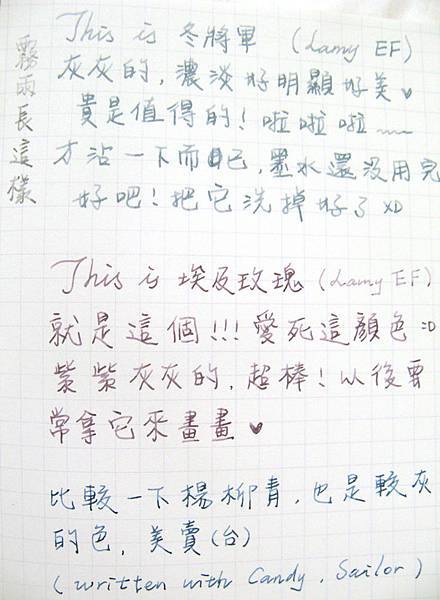 霧雨長這樣
This is 冬將軍 (Lamy EF)
灰灰的,濃淡好明顯好美♥
貴是值得的!啦啦啦~~
才沾一下而已,墨水還沒用完
好吧!把它洗掉好了 XD
This is 埃及玫瑰 (Lamy EF)
就是這個!!!愛死這顏色 =D
紫紫灰灰的,超棒!以後要
常拿它來畫畫♥
比較一下楊柳青,也是較灰
的色,美賣(台)
(written with Candy, Sailor)